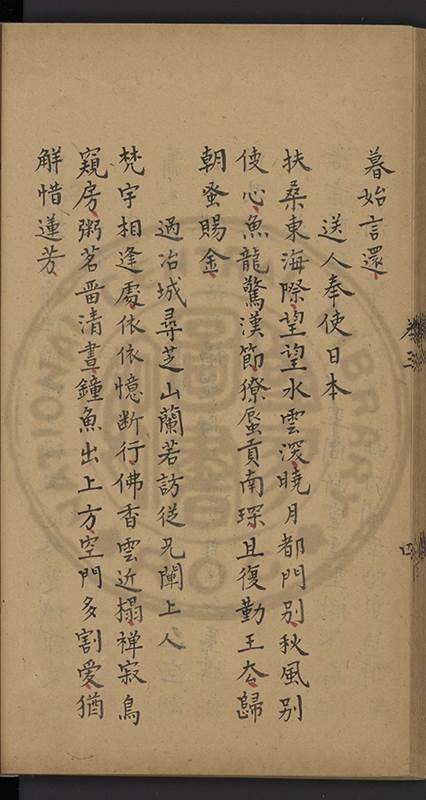 暮始言還
送人奉使日本
扶桑東海際望望水雲深曉月都門別秋風別
使心魚龍驚漢節獠蜑貢南琛且復勤王去歸
朝蚤賜金
過冶城尋芝山蘭若訪從兄闡上人
梵宇相逢處依依憶斷行佛香雲近榻禪寂鳥
窺房粥茗留清晝鐘魚出上方空門多割愛猶
解惜蓮芳
卷三
四